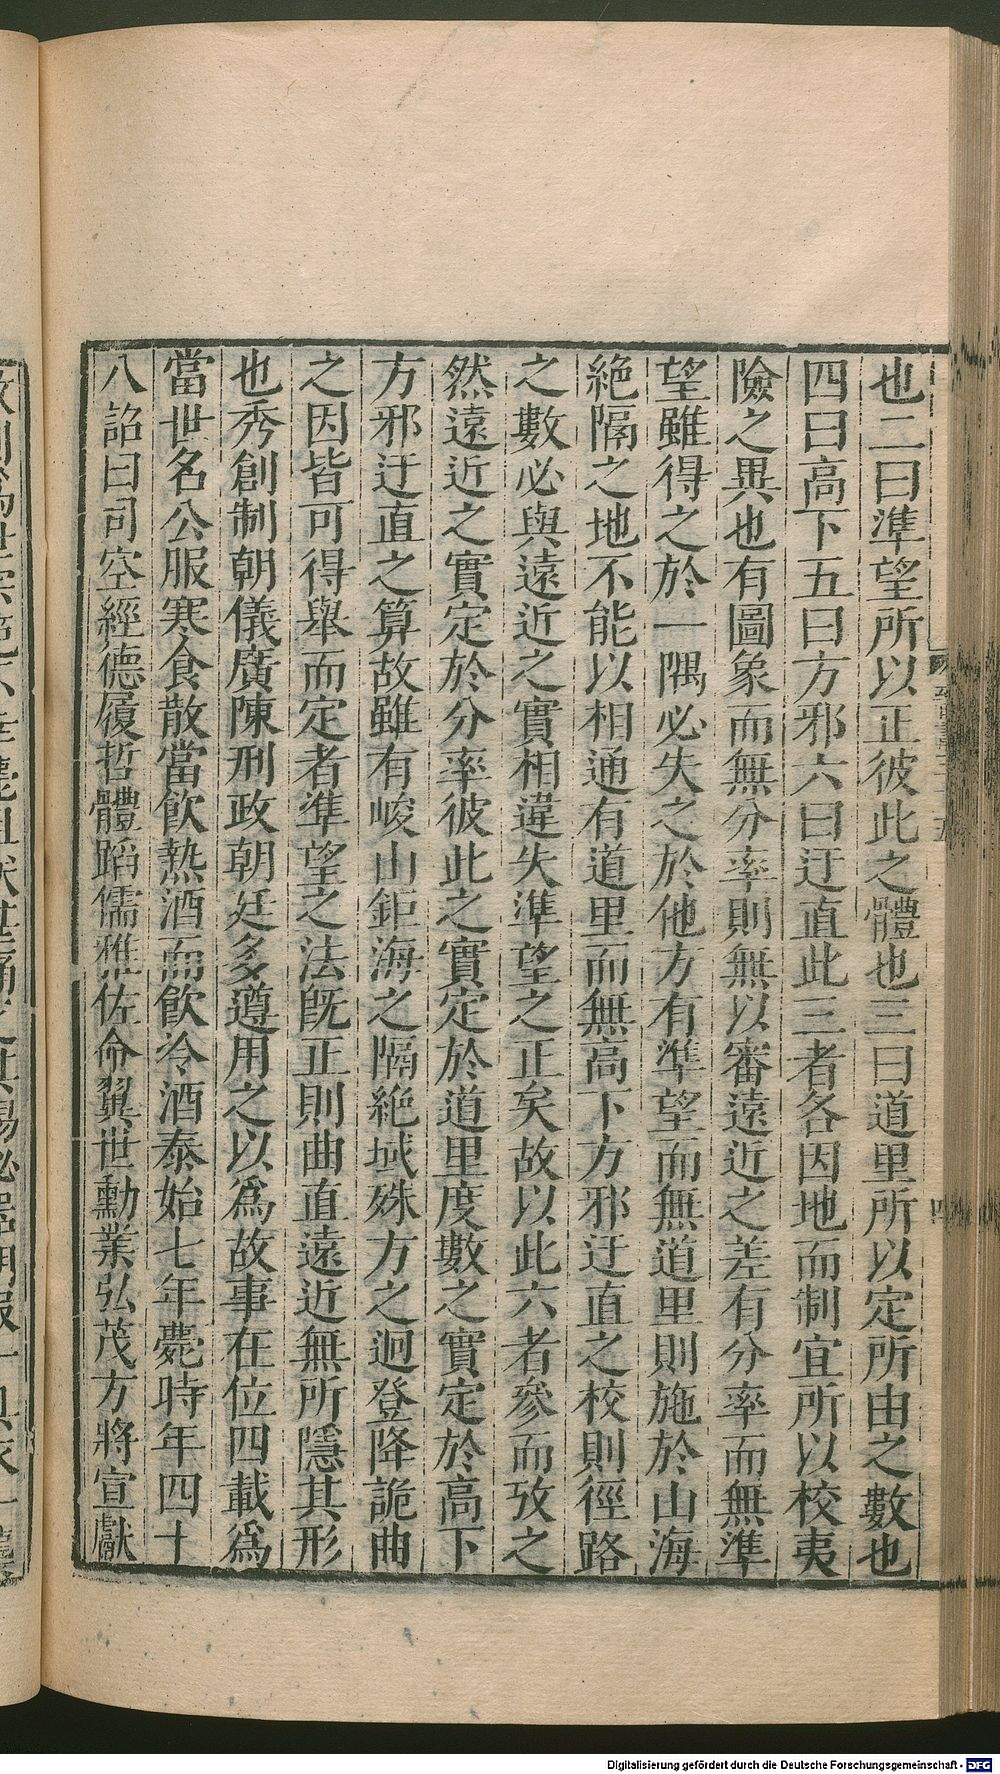 也二曰準望所以正彼此之體也三曰道里所以定所由之數也
四曰高下五曰方邪六曰迂直此三者各因地而制宜所以校夷
險之異也有圖象而無分率則無以審遠近之差有分率而無準
望雖得之於一隅必失之於他方有準望而無道里則施於山海
絶隔之地不能以相通有道里而無高下方邪迂直之校則徑路
之數必與遠近之實相違失準望之正矣故以此六者參而攷之
然遠近之實定於分率彼此之實定於道里度數之實定於高下
方邪迂直之算故雖有峻山鉅海之隔絶域殊方之迥登降詭曲
之因皆可得舉而定者準望之法旣正則曲直遠近無所隱其形
也秀創制朝儀廣陳刑政朝廷多遵用之以爲故事在位四載爲
當世名公服寒食散當飲熱酒而飲冷酒泰始七年薨時年四十
八詔曰司空經德履哲體蹈儒雅佐命翼世勳業弘茂方將宣獻
Digitalisierung gefördert durch die Deutsche Forschungsgemeinschaft - DFG